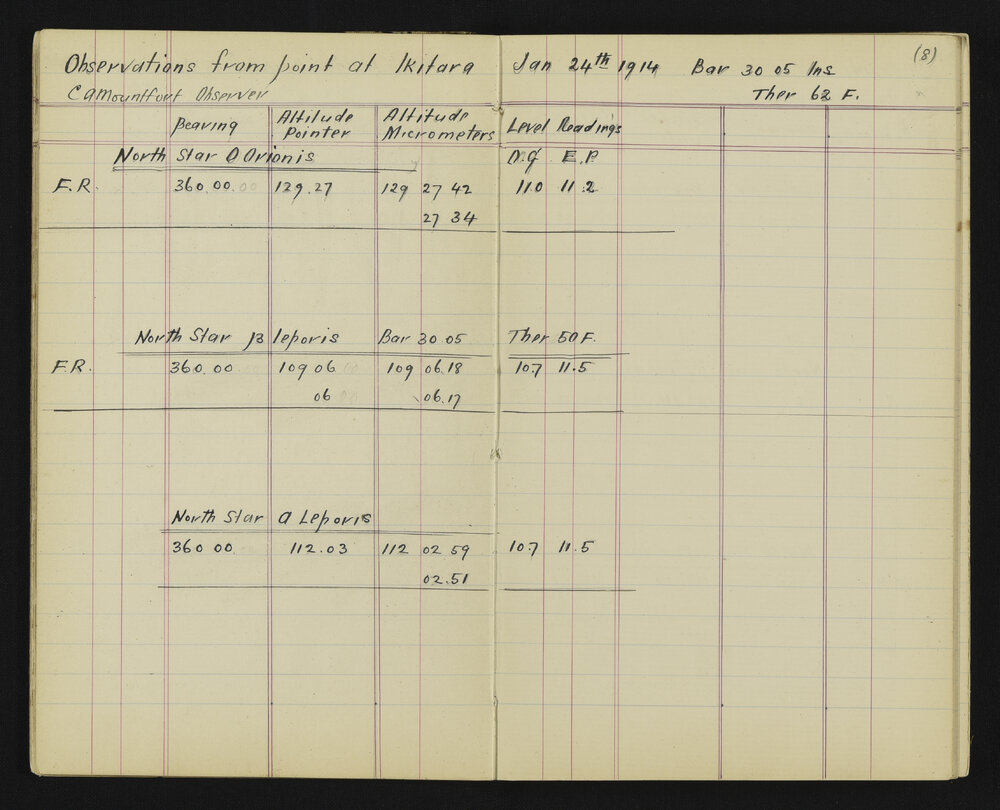 (8)
Observations from point at Ikitara Jan 24th 1914 Bar 30 05 Ins
CAMountfort Observer Ther 62 F.
Bearing Altitude Pointer Altitude Micrometers Level Readings
North Star Orionis E.P
F.R. 360.00 129.27 129 27 42 110 11.2
27 34
North Star β leporis Bar 30.05 Ther 50 F.
F.R. 360.00 109 06 109 06.18 10.7 11.5
06 06.17
North Star a Leporis
360 00 112.03 112 02 59 10.7 11.5
02.51